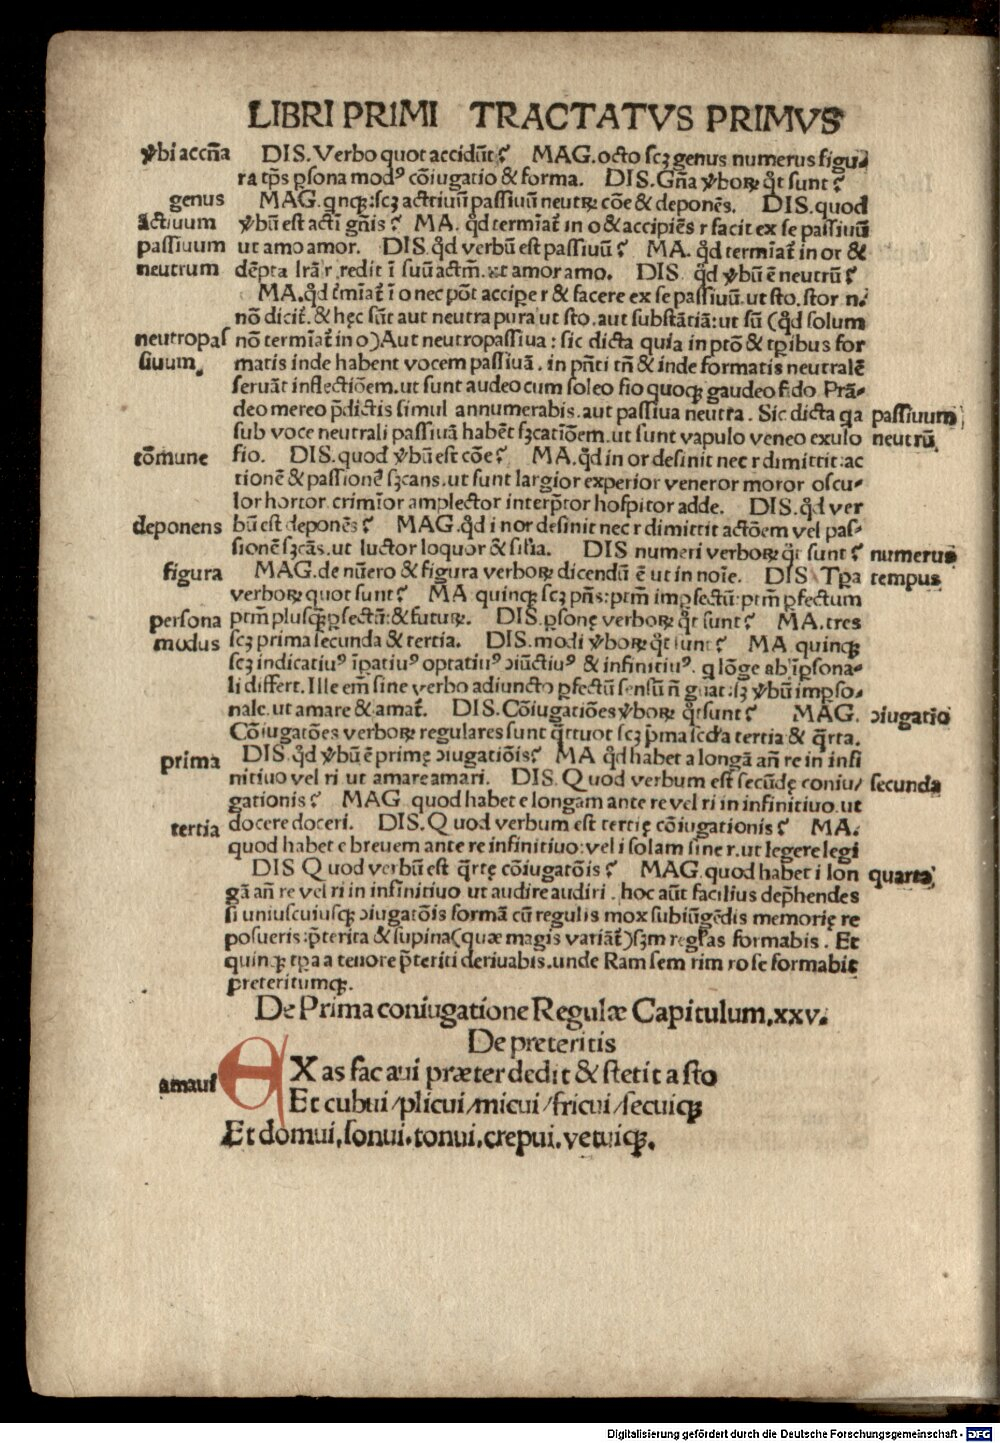 LIBRI PRIMI TRACTATVS PRIMVS
ꝟbi accn̄a DIS. Verbo quot accidūt? MAG. octo scꝫ genus numerus figu-
ra tp̄s ꝑsona modꝰ cōiugatio & forma. DIS. Gn̄a ꝟboꝝ q̊t sunt?
genus MAG. qnqꝫ: scꝫ actiuū passiuū neutꝝ cōe & deponēs. DIS. quod
actiuum ꝟbū est acti gn̄is? MA. q̊d termīat in o & accipiēs r facit ex se passiuū
passiuum ut amo amor. DIS. q̊d verbū est passiuū? MA. q̊d termīat in or &
neutrum dēpta lrā r redit ī suū actm̄. ut amor amo. DIS. q̊d ꝟbū ē neutrū?
MA. q̊d tmīat ī o nec pōt accipe r & facere ex se passiuū. ut sto. stor n.
nō dicit. & hęc sūt aut neutra pura ut sto. aut substātiā: ut sū (q̊d solum
neutropas nō termīat in o) Aut neutropassiua: sic dicta quia in ptō & tꝑibus for
siuum. matis inde habent vocem passiuā. in pn̄ti tn̄ & inde formatis neutralē
seruāt inflectiōem. ut sunt audeo cum soleo fio quoqꝫ gaudeo fido Prā-
deo mereo p̄dictis simul annumerabis. aut passiua neutra. Sic dicta qa passiuum
sub voce neutrali passiuā habēt sꝫcatiōem. ut sunt vapulo veneo exulo neutrū
cōmune fio. DIS. quod ꝟbū est cōe? MA. q̊d in or desinit nec r dimittit: ac
tionē & passionē sꝫcans. ut sunt largior experior veneror moror oscu-
lor hortor. crimīor amplector interp̄tor hospitor adde. DIS. q̊d ver
deponens bū est deponēs? MAG. q̊d i nor desinit nec r dimittit actōem vel pas-
sionē sꝫcās. ut luctor loquor & sil'ia. DIS numeri verboꝝ q̊t sunt? numerus
figura MAG. de nūero & figura verboꝝ dicendū ē ut in noīe. DIS Tꝑa tempus
verboꝝ quot sunt? MA quinqꝫ scꝫ pn̄s: ptm̄ imꝑfectū: ptm̄ ꝑfectum
persona ptm̄ plusqꝫꝑfectū: & futuꝝ. DIS. ꝑsonę verboꝝ q̊t sunt? MA. tres
modus scꝫ prima secunda & tertia. DIS. modi ꝟboꝝ q̊t sunt? MA quinqꝫ
scꝫ indicatiuꝰ īpatiuꝰ optatiuꝰ ɔiūctiuꝰ & infinitiuꝰ. q lōge ab īꝑsona-
li differt. Ille em̄ sine verbo adiuncto ꝑfectū sensū n̄ gn̄at: sꝫ ꝟbū imꝑso-
nale. ut amare & amat. DIS. Cōiugatiōes ꝟboꝝ q̊t sunt? MAG. ɔiugatio
Cōiugatōes verboꝝ regulares sunt q̄ttuor scꝫ p̄ma scd̄a tertia & q̄rta.
prima DIS. q̊d ꝟbū ē primę ɔiugatiōis? MA q̊d habet a longā an̄ re in infi
nitiuo vel ri ut amare amari. DIS. Quod verbum est secūdę coniu/ secunda
gationis? MAG quod habet e longam ante re vel ri in infinitiuo. ut
tertia docere doceri. DIS. Quod verbum est tertię cōiugationis? MA.
quod habet e breuem ante re infinitiuo: vel i solam sine r. ut legere legi
DIS Quod verbū est q̄rtę cōiugatōis? MAG. quod habet i lon quarta
gā an̄ re vel ri in infinitiuo ut audire audiri. hoc aūt facilius dep̄hendes
si uniuscuiusqꝫ ɔiugatōis formā cū regulis mox subiūgēdis memorię re
posueris: p̄terita & supina (quæ magis variāt) sꝫm regl̄as formabis. Et
quinqꝫ tꝑa a tenore p̄teriti deriuabis. unde Ram sem rim ro se formabit
preteritumqꝫ.
De Prima coniugatione Regulæ Capitulum. xxv.
De preteritis
amaui EX as fac aui præter dedit & stetit a sto
Et cubui/plicui/micui/fricui/secuiqꝫ
Et domui. sonui. tonui. crepui. vetuiqꝫ.
Digitalisierung gefördert durch die Deutsche Forschungsgemeinschaft - DFG